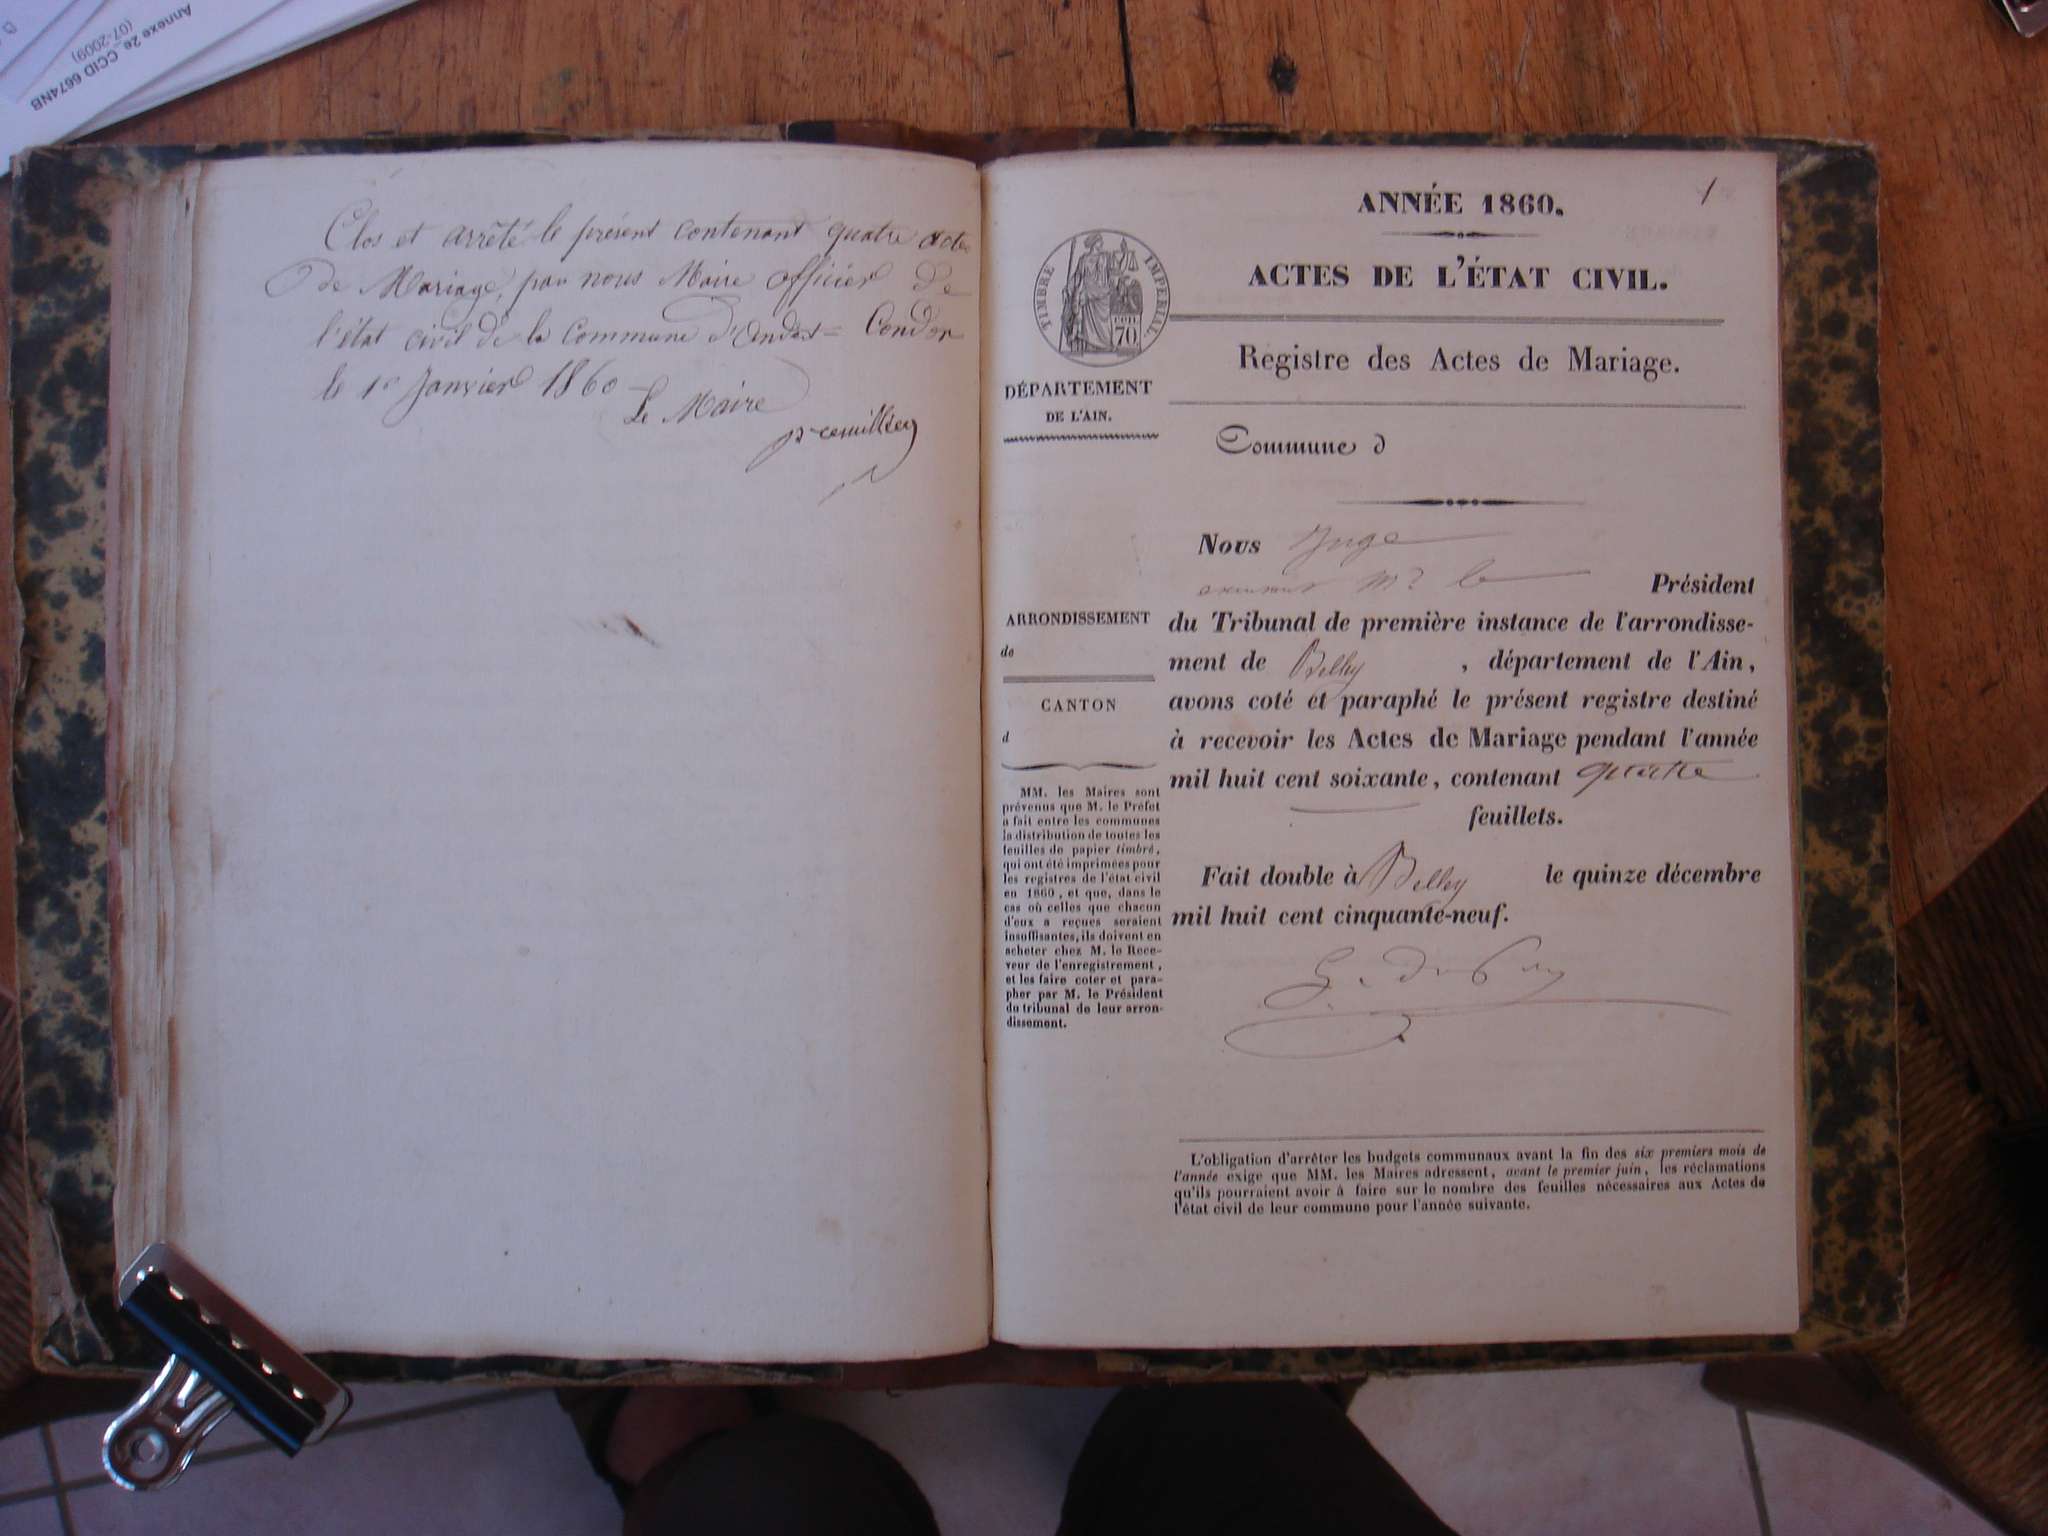 Annexe 2e_CCID 6674NB
(07-2009)
Clos et arrêté le présent contenant quatre actes
de Mariage, par nous Maire officier de
l'état civil de la Commune d'Andert=Condon
le 1er Janvier 1860
Le Maire
1
ANNÉE 1860.
ACTES DE L'ÉTAT CIVIL.
TIMBRE IMPÉRIAL
70
Registre des Actes de Mariage.
DÉPARTEMENT
DE L'AIN.
Commune d
Nous Juge
Mr le Président
ARRONDISSEMENT
de
CANTON
d
du Tribunal de première instance de l'arrondisse-
ment de Belley , département de l'Ain,
avons coté et paraphé le présent registre destiné
à recevoir les Actes de Mariage pendant l'année
mil huit cent soixante, contenant quatre
feuillets.
Fait double à Belley le quinze décembre
mil huit cent cinquante-neuf.
MM. les Maires sont
prévenus que M. le Préfet
a fait entre les communes
la distribution de toutes les
feuilles de papier timbré,
qui ont été imprimées pour
les registres de l'état civil
en 1860, et que, dans le
cas où celles que chacun
d'eux a reçues seraient
insuffisantes, ils doivent en
acheter chez M. le Rece-
veur de l'enregistrement,
et les faire coter et para-
pher par M. le Président
du tribunal de leur arron-
dissement.
L'obligation d'arrêter les budgets communaux avant la fin des six premiers mois de
l'année exige que MM. les Maires adressent, avant le premier juin, les réclamations
qu'ils pourraient avoir à faire sur le nombre des feuilles nécessaires aux Actes de
l'état civil de leur commune pour l'année suivante.